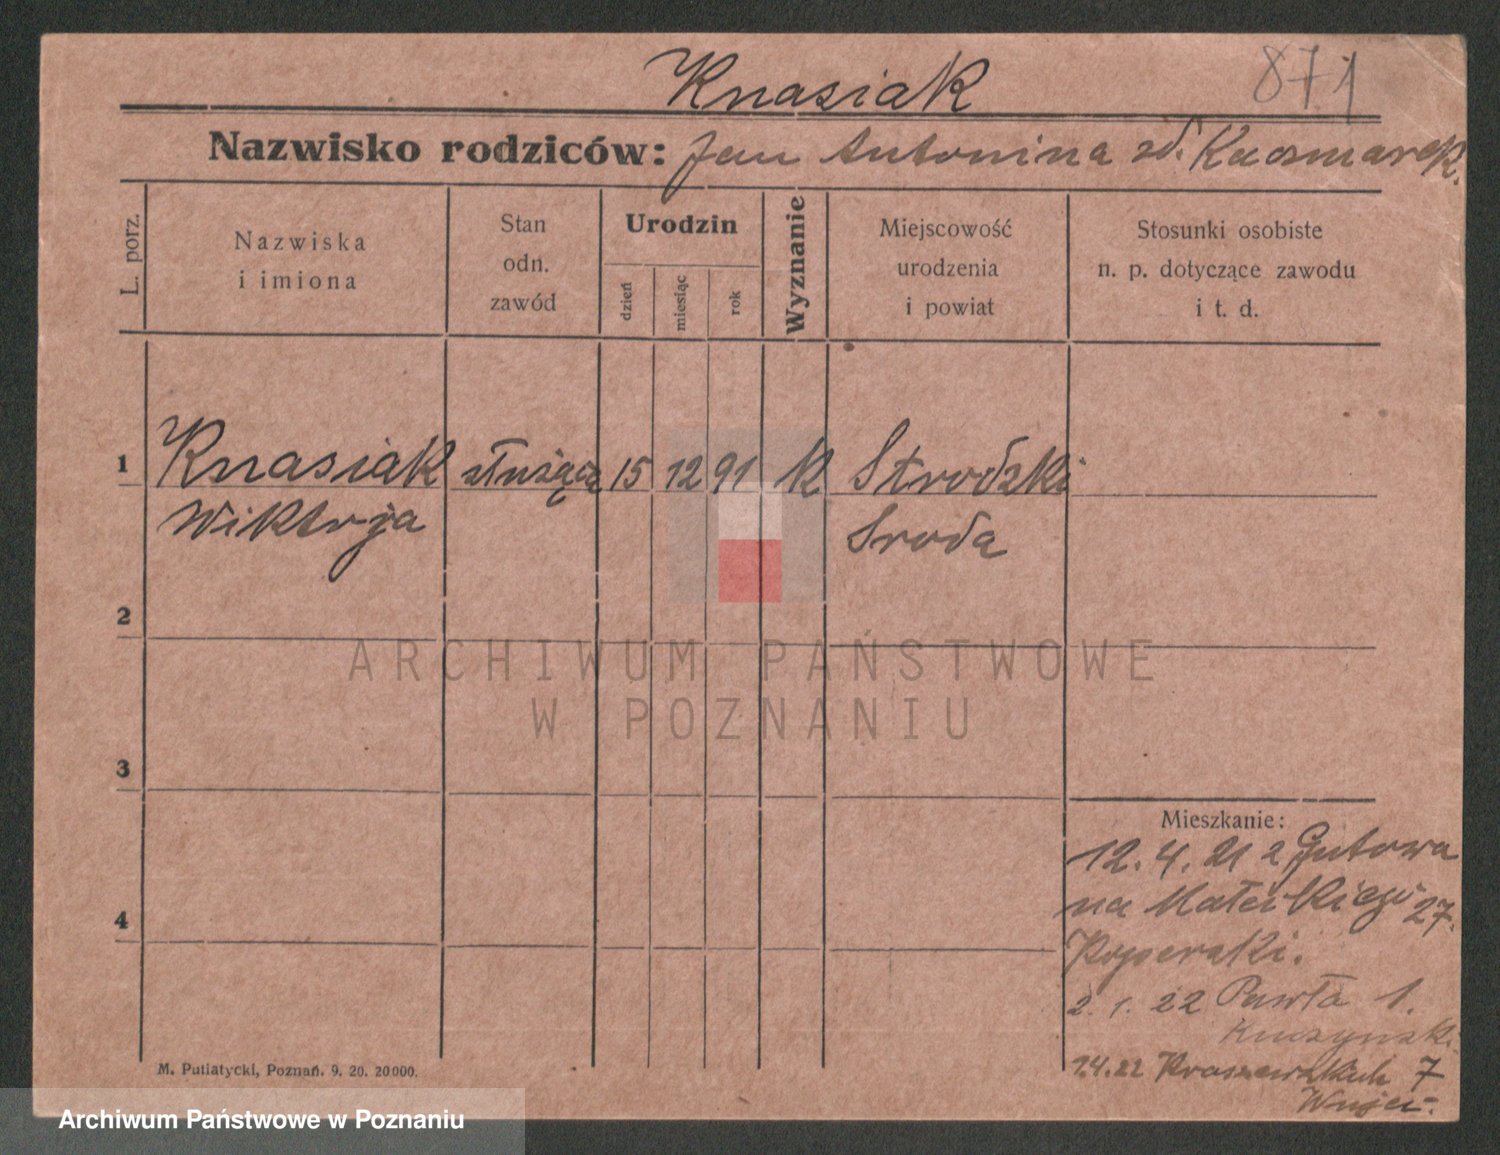 Knasiak
871
Nazwisko rodziców: Jan Antonina zd. Kaczmarek.
L. porz.
Nazwiska
i imiona
Stan
odn.
zawód
Urodzin
dzień
miesiąc
rok
Wyznanie
Miejscowość
urodzenia
i powiat
Stosunki osobiste
n. p. dotyczące zawodu
i t. d.
1
Knasiak służąca 15 12 91 k
Wiktrja Środa
2
ARCHIWUM PAŃSTWOWE
W POZNANIU
3
4
Mieszkanie:
12. 4. 21 z Gutowa
na 27.
2. 1. 22 Pawła 1.
1.4.22 7
M. Putiatycki, Poznań. 9. 20. 20000.
Archiwum Państwowe w Poznaniu